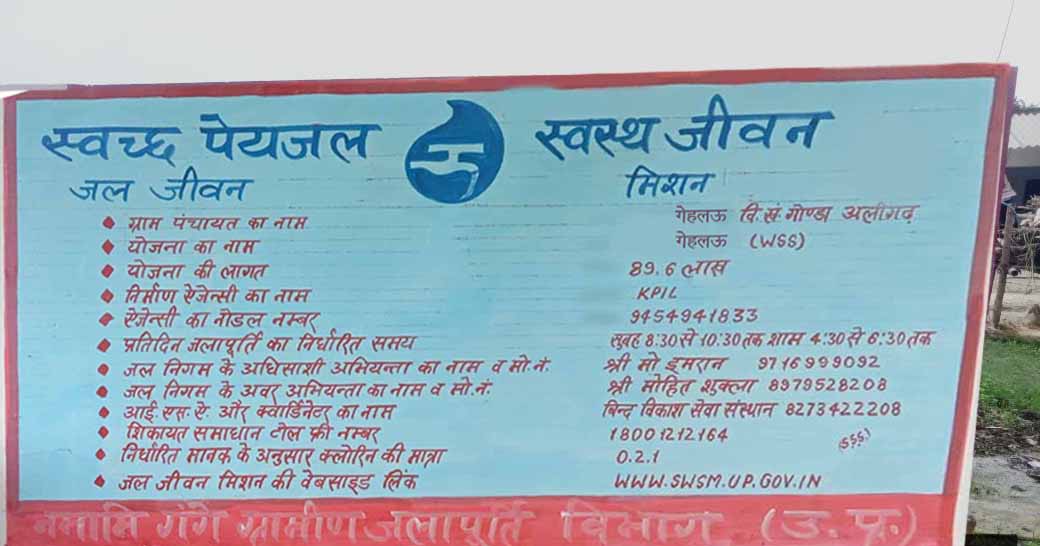 स्वच्छ पेयजल स्वस्थ जीवन
जल जीवन मिशन
ग्राम पंचायत का नाम गेहलऊ वि.खं.गोण्डा अलीगढ़
योजना का नाम गेहलऊ (WSS)
योजना की लागत 89.6 लाख
निर्माण ऐजेन्सी का नाम KPIL
ऐजेन्सी का नोडल नम्बर 9454941833
प्रतिदिन जलापूर्ति का निर्धारित समय सुबह 8:30 से 10.30 तक शाम 4:30 से 6:30 तक
जल निगम के अधिसाशी अभियन्ता का नाम व मो.नं. श्री मो इमरान 9716999092
जल निगम के अवर अभियन्ता का नाम व मो.नं. श्री मोहित शुक्ला 8979528208
आई.एस.ऐ. और क्वार्डिनेटर का नाम बिन्द विकाश सेवा संस्थान 8273422208
शिकायत समाधान टोल फ्री नम्बर 18001212164
निर्धारित मानक के अनुसार क्लोरिन की मात्रा 0.2.1
जल जीवन मिशन की वेबसाइड लिंक WWW.SWSM.UP.GOV.IN
नमामि गंगे ग्रामीण जलापूर्ति विभाग (उ.प्र.)